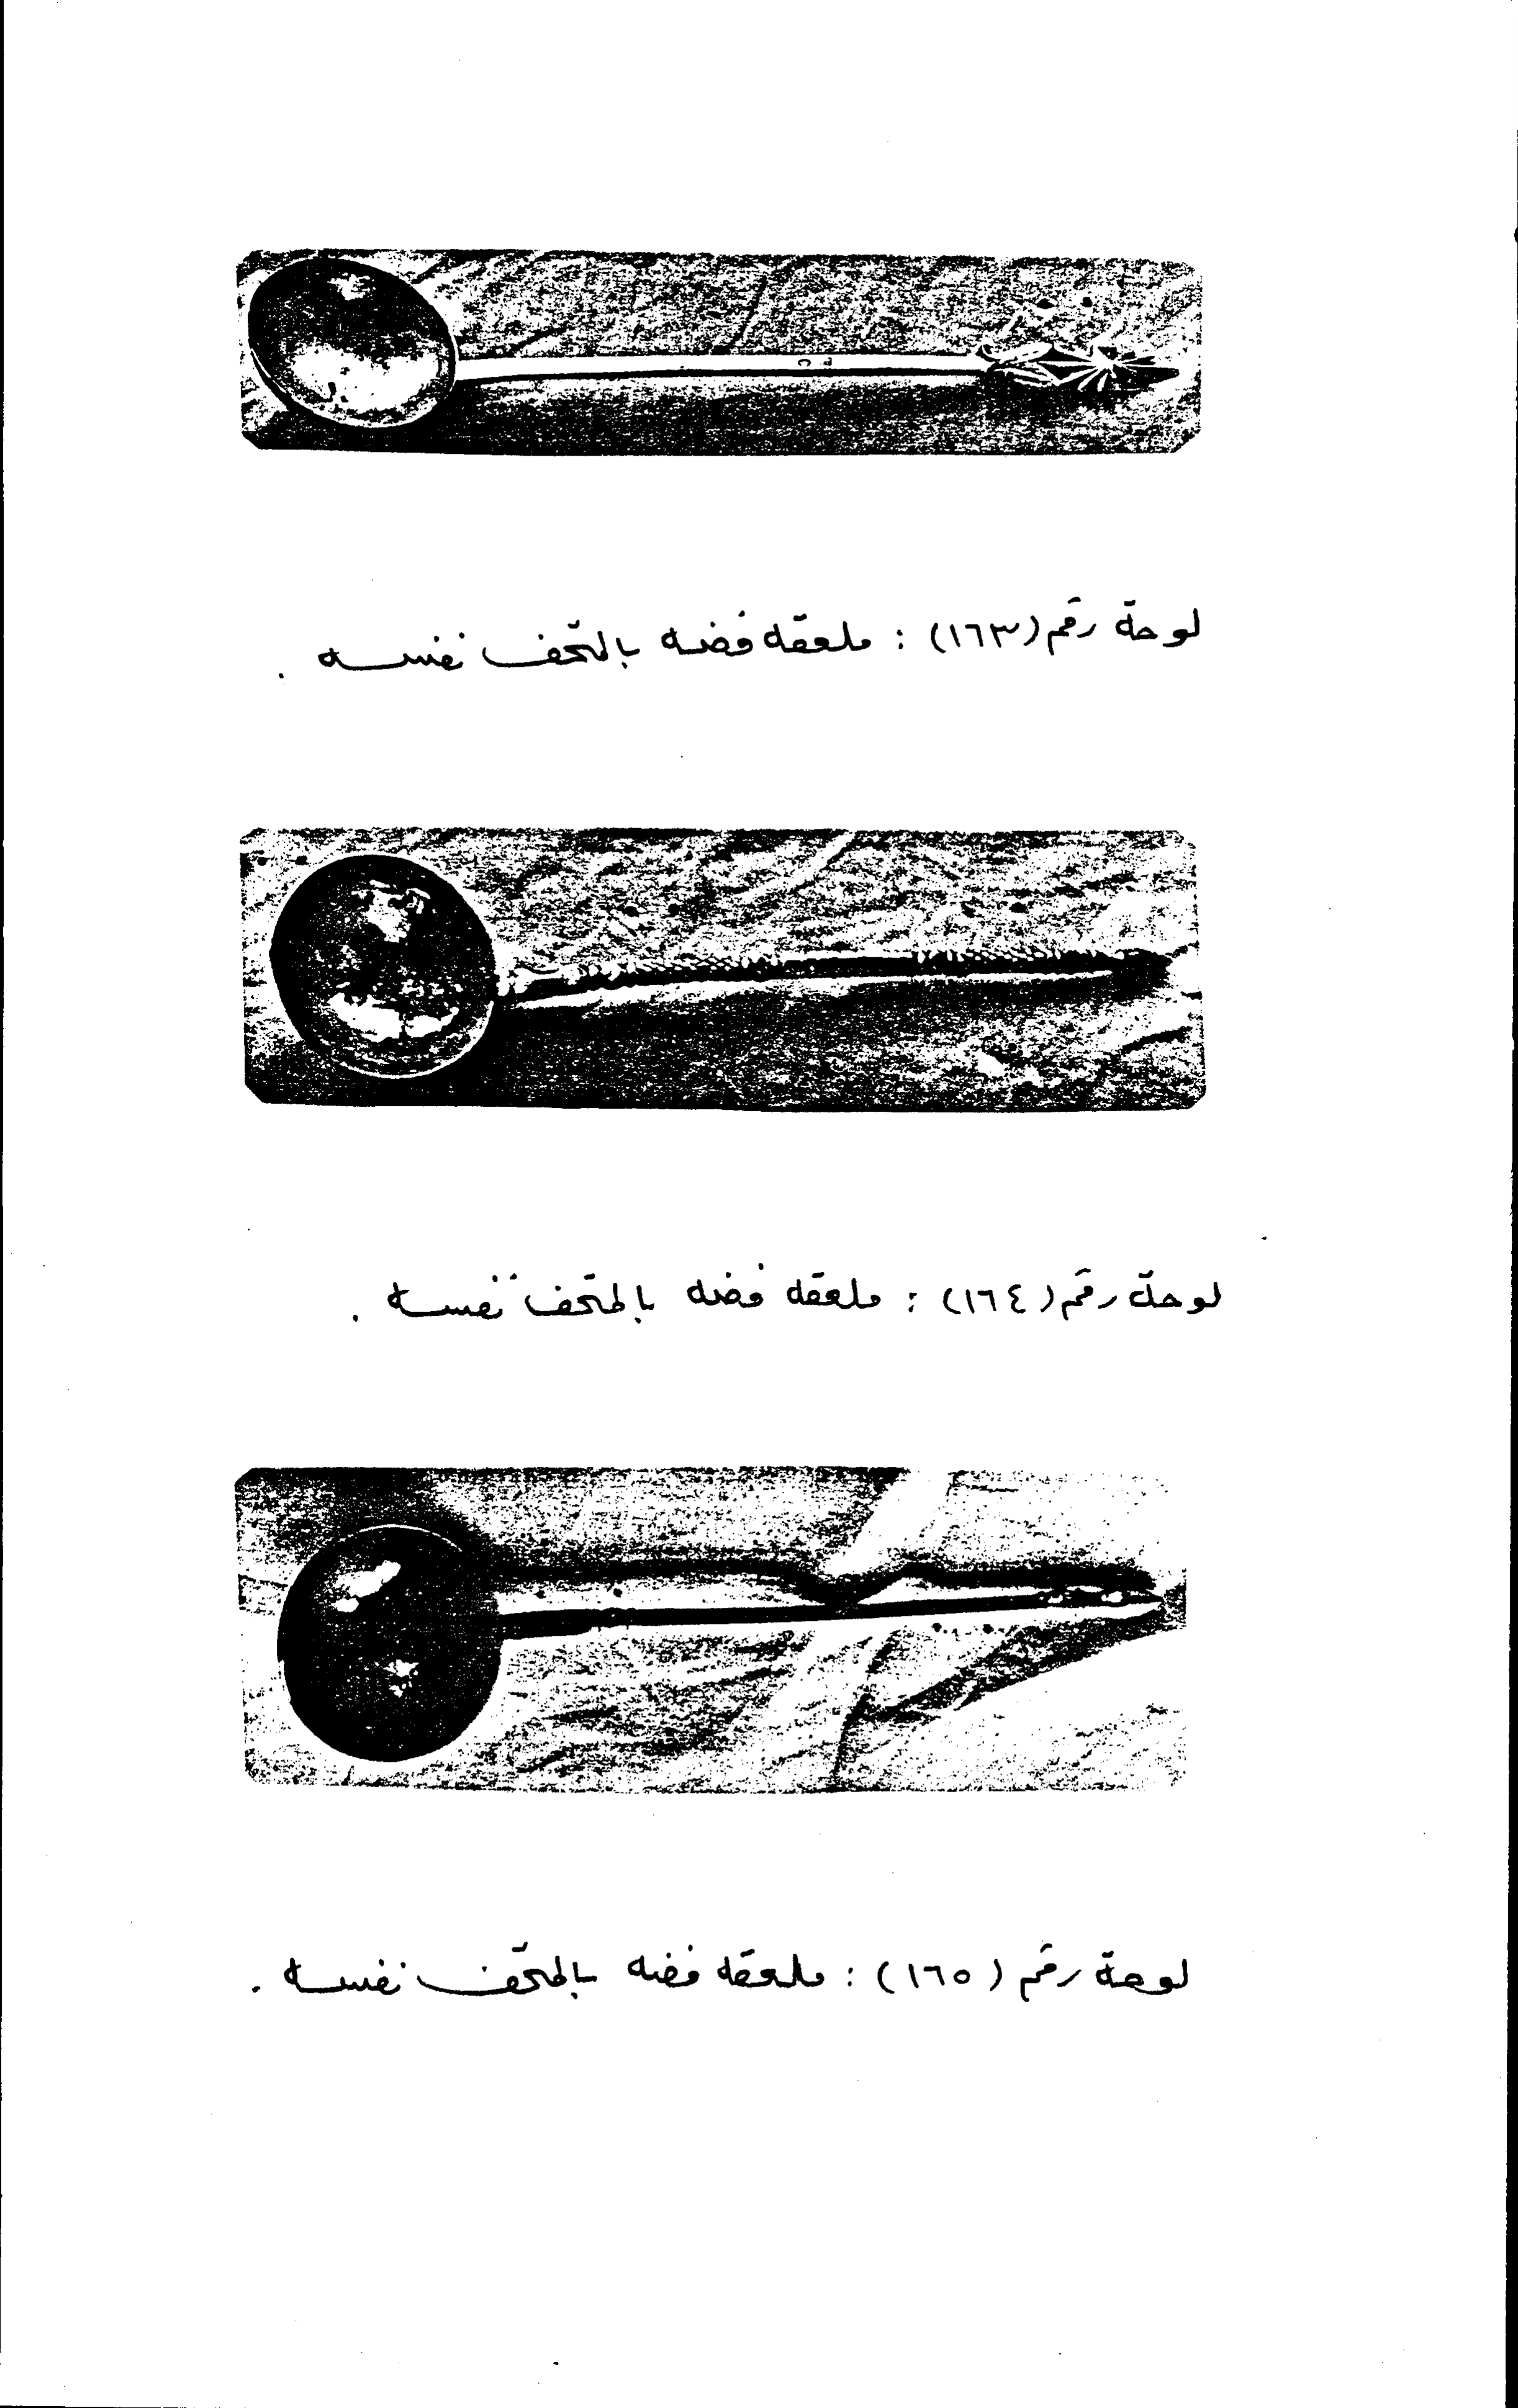 لوحة رقم (١٦٣) : ملعقه فضه بالمتحف نفسه .
لوحة رقم (١٦٤) : ملعقه فضه بالمتحف نفسه .
لوحة رقم (١٦٥) : ملعقه فضه بالمتحف نفسه .